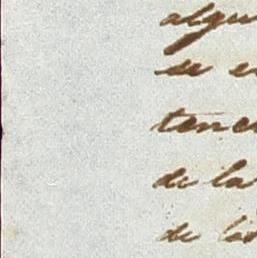 algu
se e
tene
de la
de los